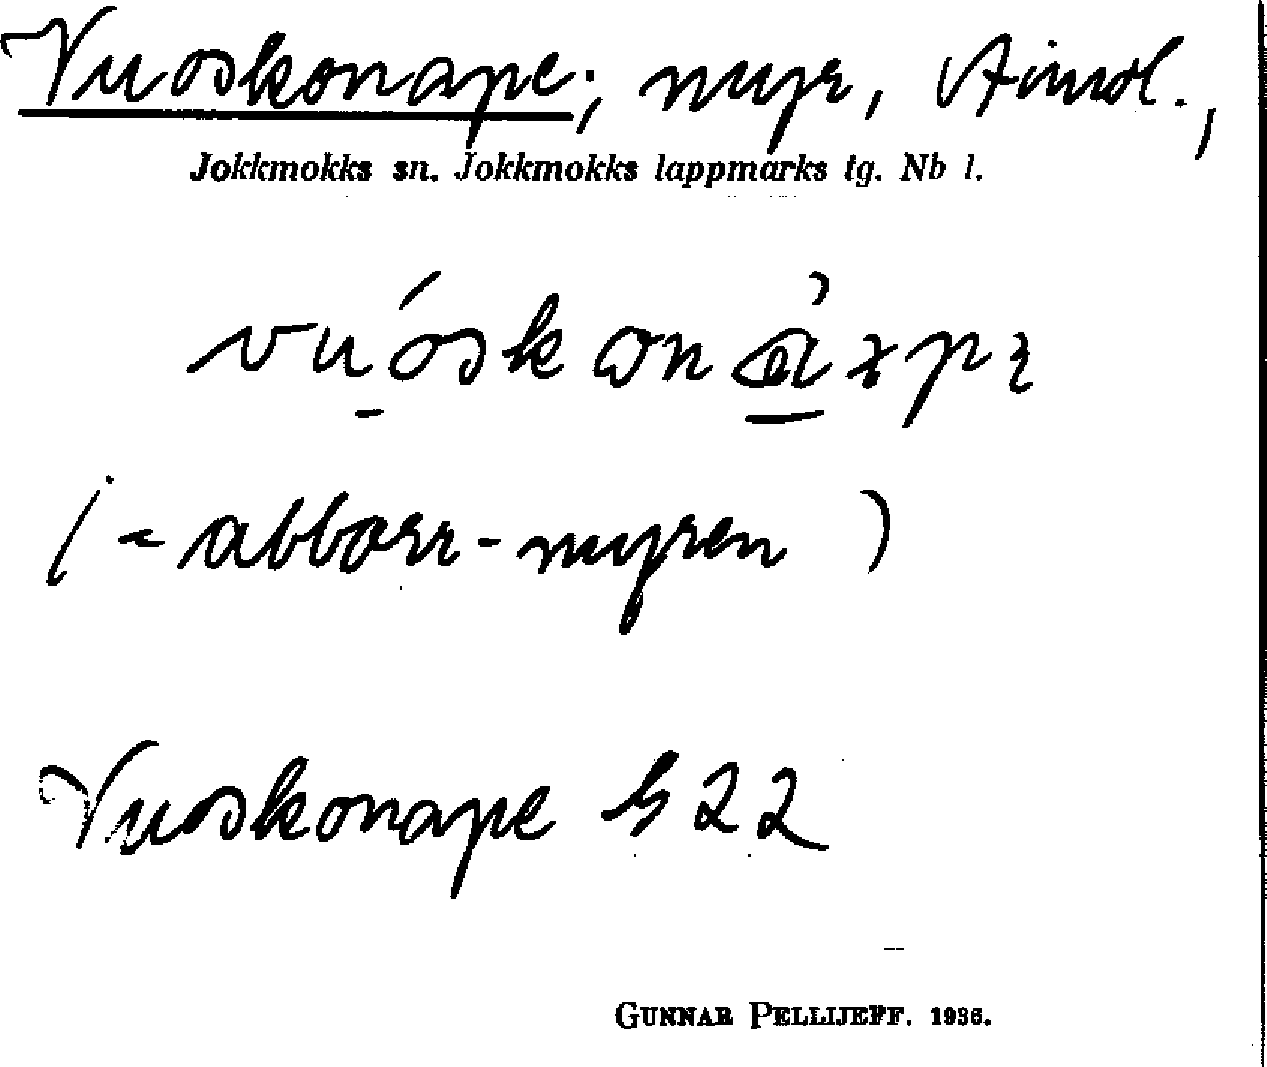 Vuoskonape; myr,
Jokkmokks sn. Jokkmokks lappmarks tg. Nb l.
(= abborr-myren )
Vuoskonape S 22
GUNNAR PELLIJEFF. 1936.